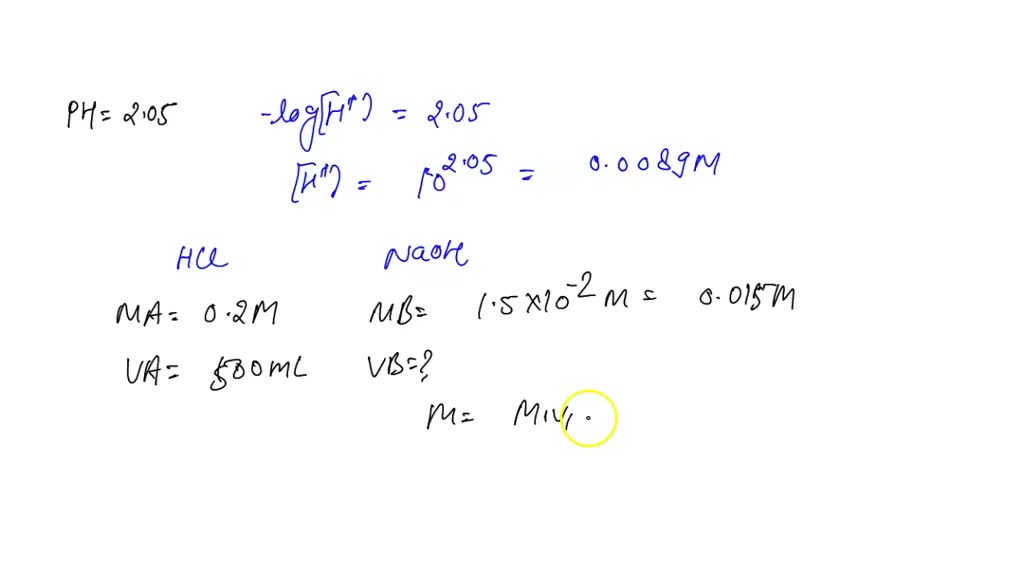 PH = 2.05 -log[H⁺) = 2.05
[H⁺) = 10^2.05 = 0.0089M
HCl NaOH
MA = 0.2M MB = 1.5 X10^-2 M = 0.015M
VA = 500mL VB = ?
M = M1V1